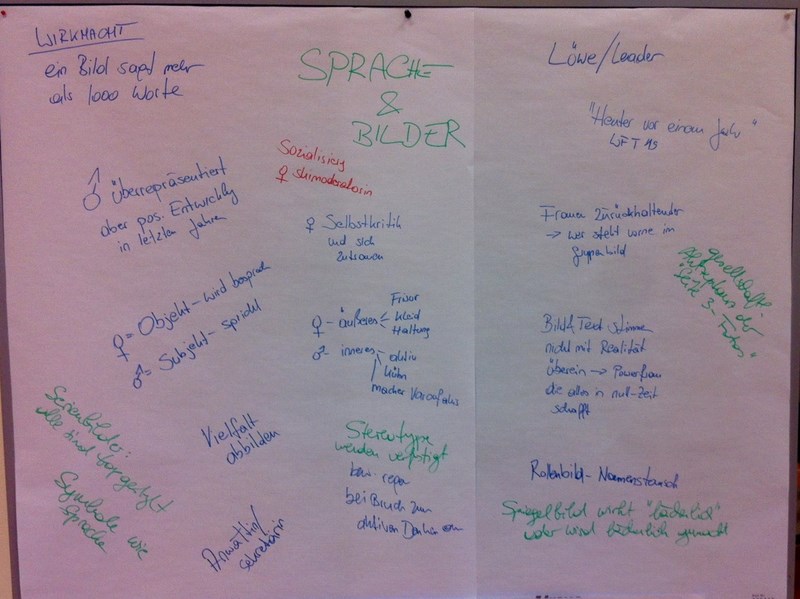 WIRKMACHT
ein Bild sagt mehr
als 1000 Worte
♂ überrepräsentiert
aber pos. Entwicklg
in letzten Jahren
♀ = Objekt - wird besproch
♂ = Subjekt - spricht
Serienbilder:
alle sind
Symbole wie
Sprache
Vielfalt
abbilden
Anwältin/
Sekretärin
SPRACHE
&
BILDER
Sozialisierg
♀ Skimoderatorin
♀ Selbstkritik
und sich
zutrauen
♀ - äußeres
Frisur
Kleid
Haltung
♂ - inneres
aktiv
kühn
macher
Stereotype
werden verfestigt
bzw.
bei Bruch zum
aktiven Denken
Löwe/Leader
"Heuter vor einem Jahr"
Frauen zurückhaltender
→ wer steht vorne im
Gruppenbild
gesellschaftl.
Akzeptanz der
"Seite 3-Fotos"
Bild & Text stimmen
nicht mit Realität
überein → Powerfrau
die alles in null-Zeit
schafft
Rollenbild - Normenstausch
Spiegelbild wirkt "lächerlich"
oder wird lächerlich gemacht